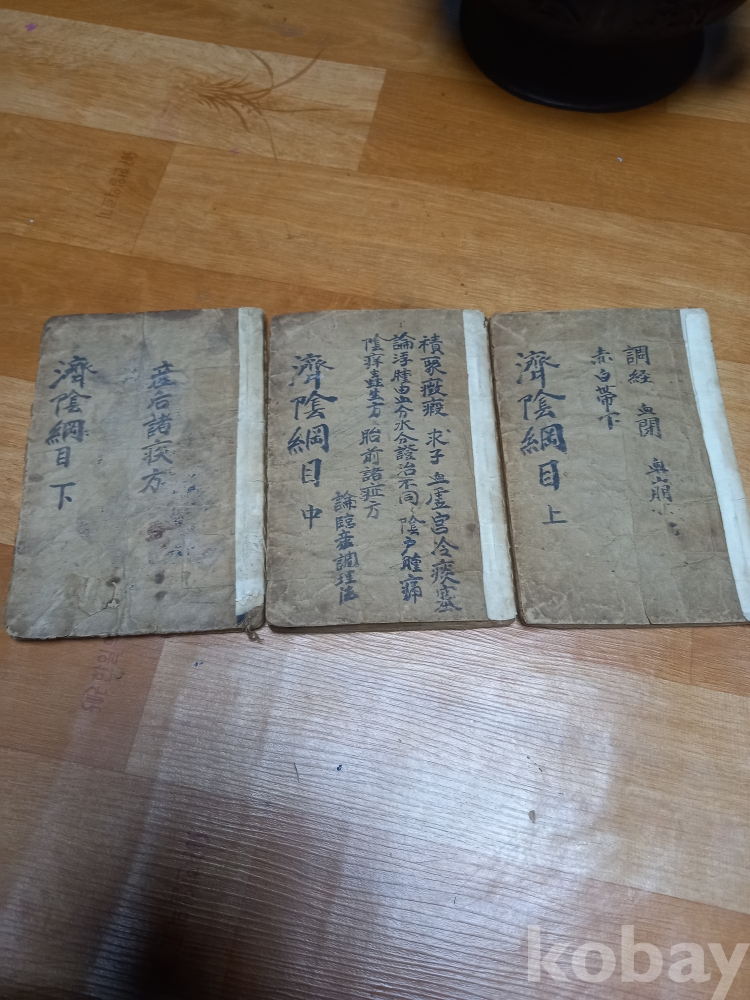 濟陰綱目 上
調経 血閉 血崩
赤白帶下
濟陰綱目 中
積聚癥瘕 求子 血虛宮冷痰塞
論浮腫由血分水分證治不同 陰戶腫痛
陰痒蟲生方 胎前諸症方
論臨産調理法
濟陰綱目 下
産后諸疾方
kobay